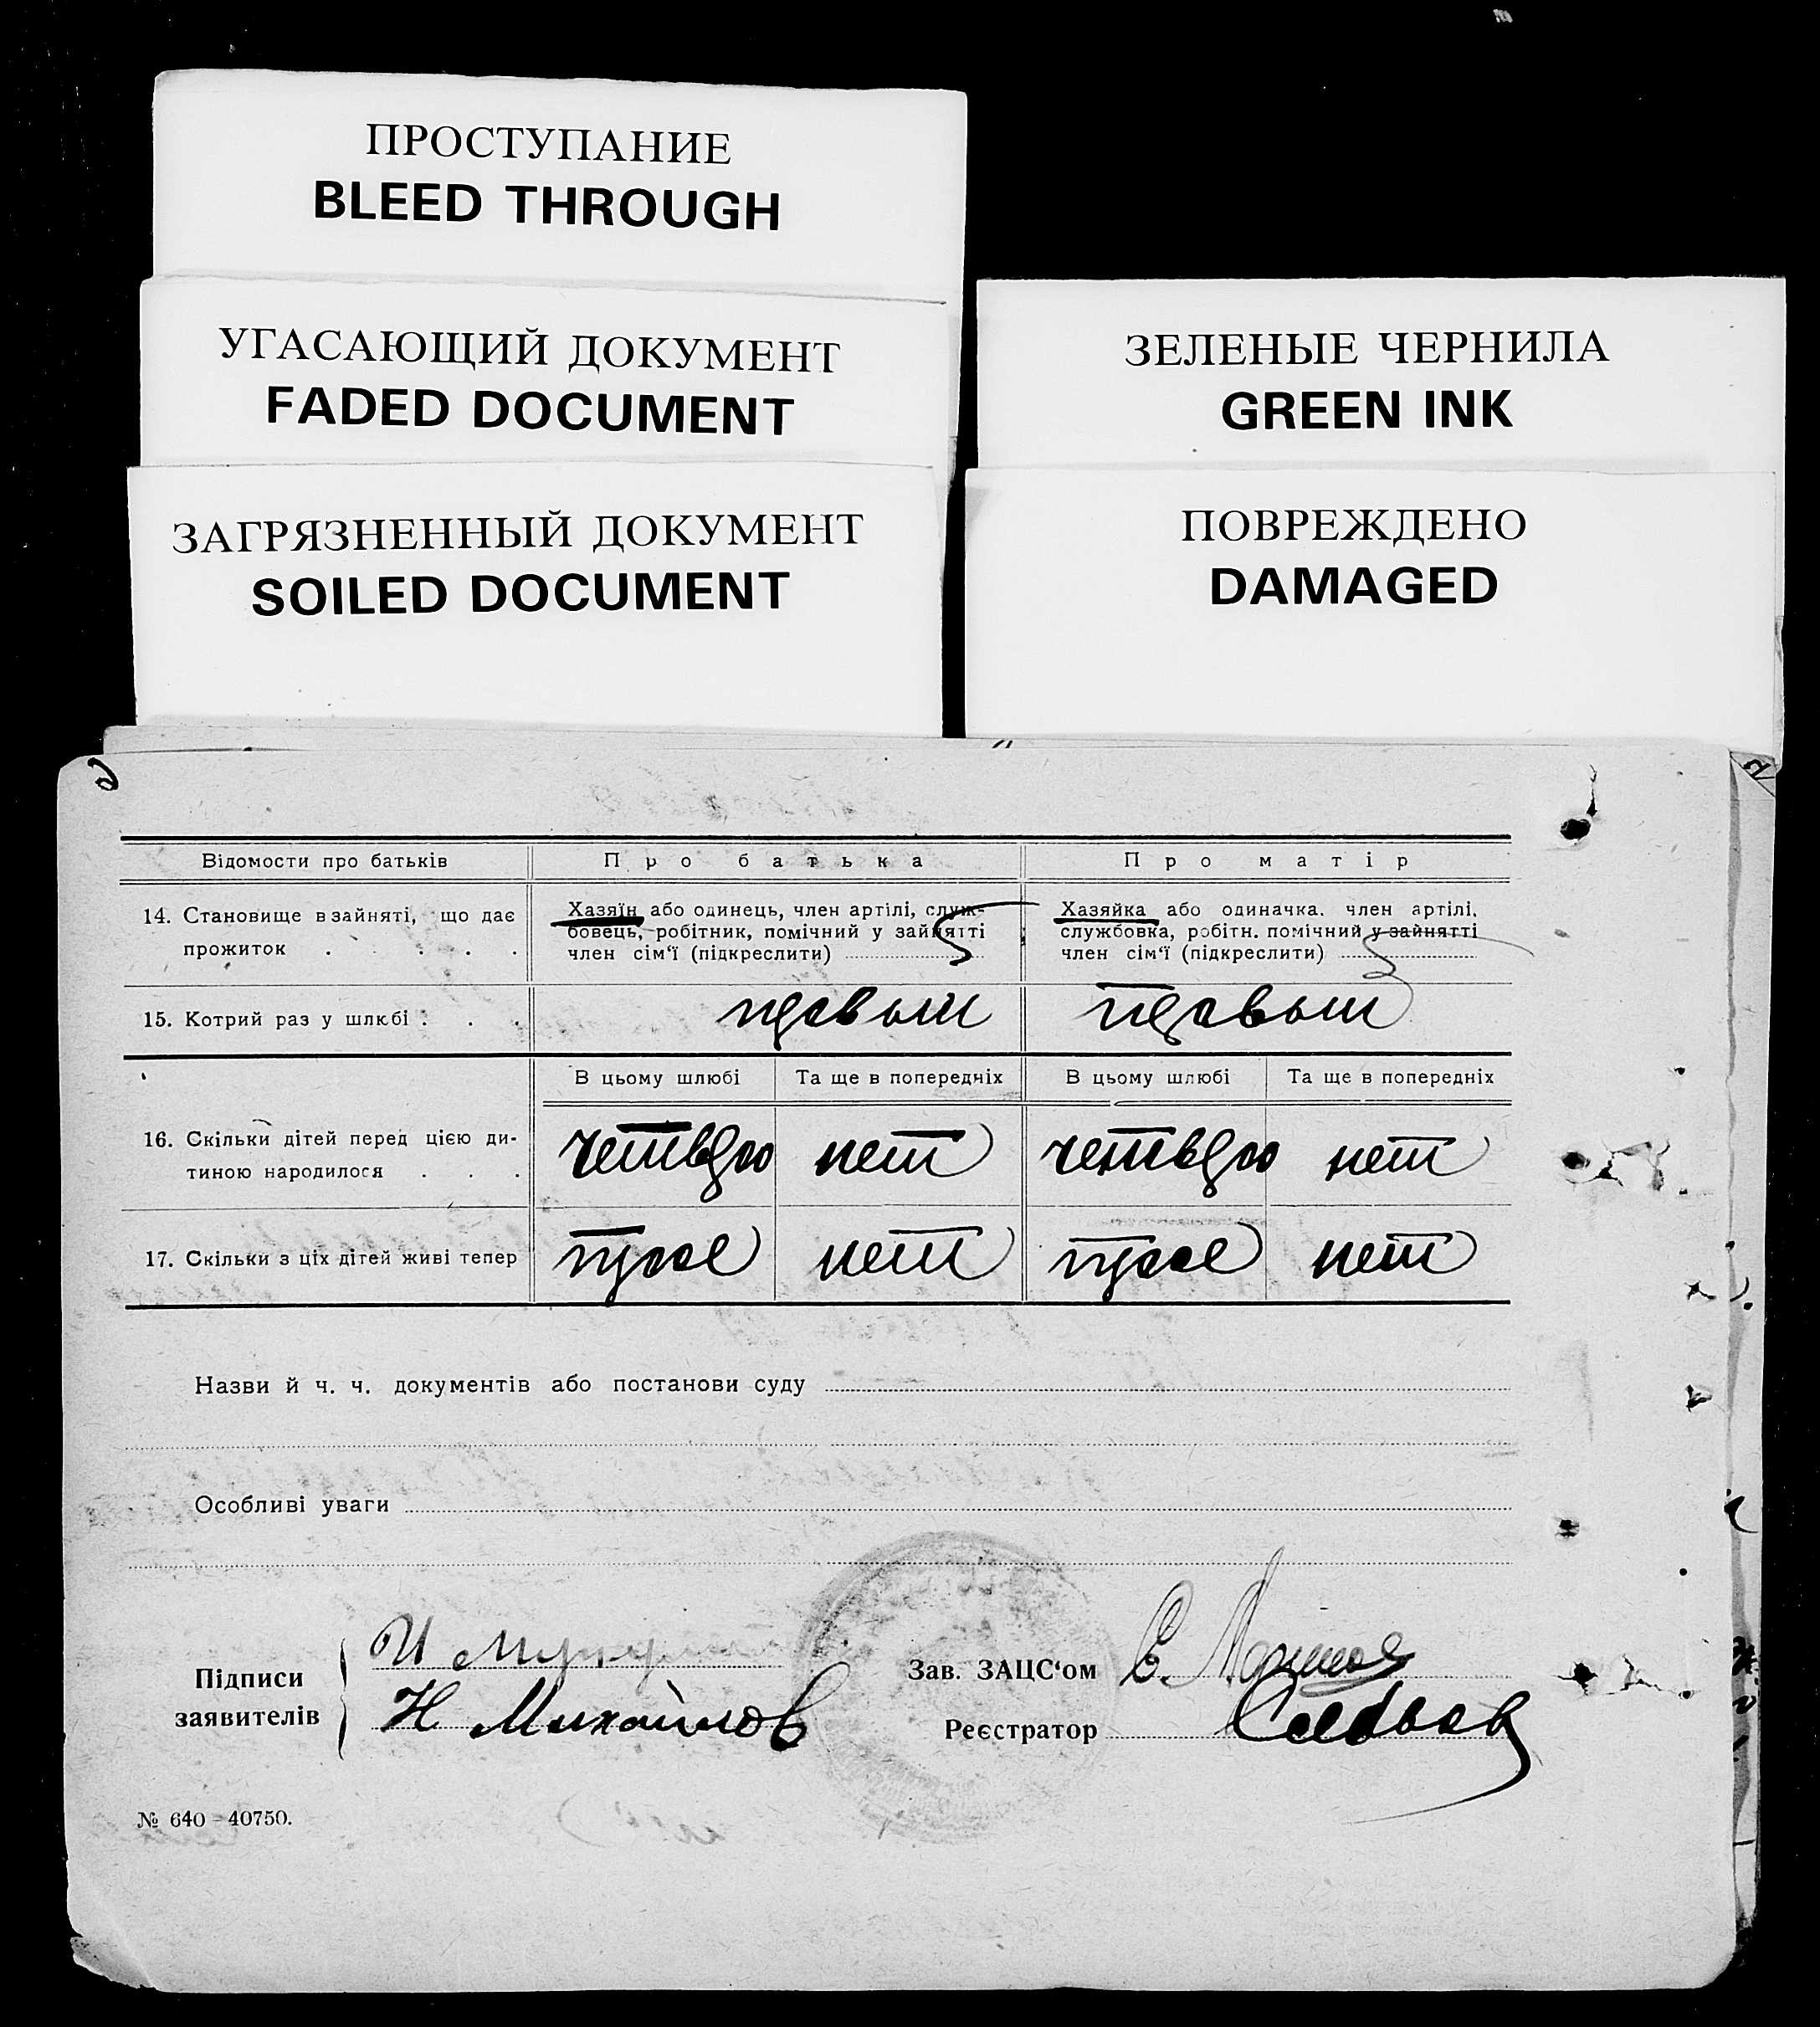 ПРОСТУПАНИЕ
BLEED THROUGH
УГАСАЮЩИЙ ДОКУМЕНТ
FADED DOCUMENT
ЗЕЛЕНЫЕ ЧЕРНИЛА
GREEN INK
ЗАГРЯЗНЕННЫЙ ДОКУМЕНТ
SOILED DOCUMENT
ПОВРЕЖДЕНО
DAMAGED
Відомости про батьків
Про батька
Про матір
14. Становище в зайняті, що дає
прожиток . . . . .
Хазяїн або одинець, член артілі, служ-
бовець, робітник, помічний у зайнятті
член сім'ї (підкреслити)
5
Хазяйка або одиначка. член артілі,
службовка, робітн. помічний у зайнятті
член сім'ї (підкреслити)
15. Котрий раз у шлюбі . . .
первый
первый
В цьому шлюбі
Та ще в попередніх
В цьому шлюбі
Та ще в попередніх
16. Скільки дітей перед цією ди-
тиною народилося . . .
четверо
нет
четверо
нет
17. Скільки з ціх дітей живі тепер
трое
нет
трое
нет
Назви й ч. ч. документів або постанови суду
Особливі уваги
Підписи
заявителів
И
Н Михайлов
Зав. ЗАЦС'ом
Е.
Реєстратор
№ 640 - 40750.